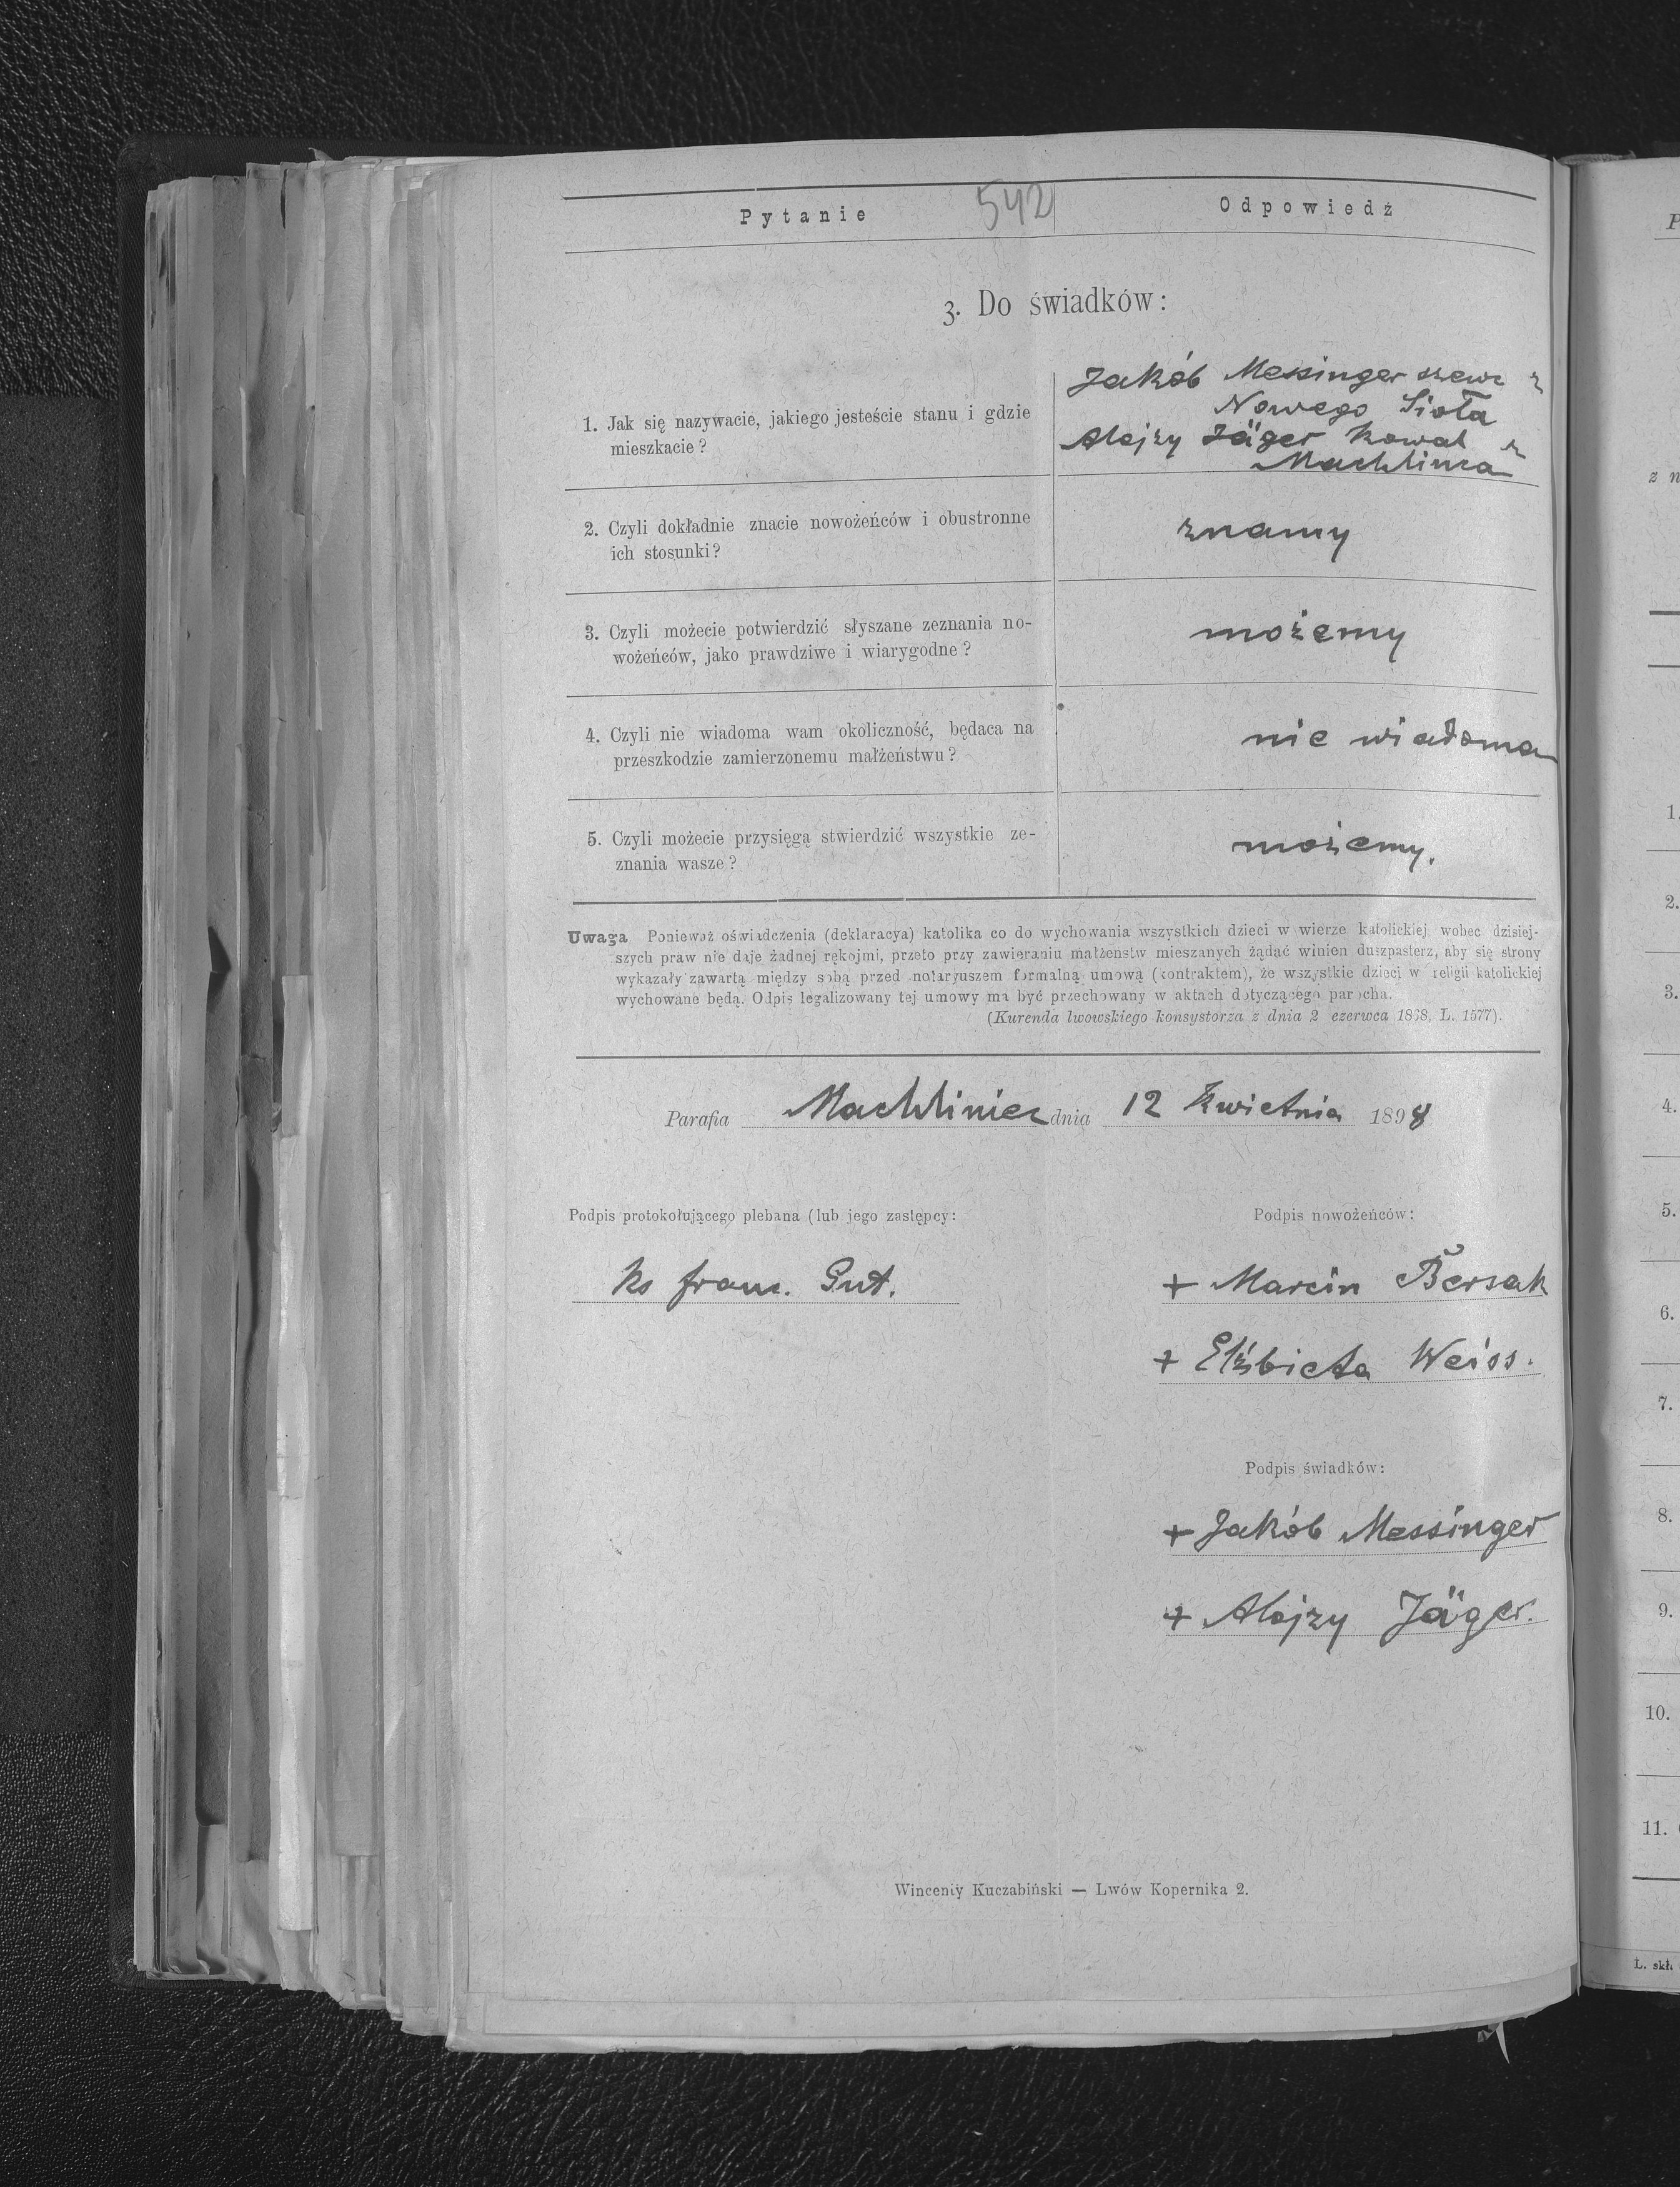 Pytanie 542 Odpowiedź
3. Do świadków:
1. Jak się nazywacie, jakiego jesteście stanu i gdzie
mieszkacie?
Jakób Messinger szewc z
Nowego Sioła
Alojzy Jäger kowal z
Machlińca
2. Czyli dokładnie znacie nowożeńców i obustronne
ich stosunki?
znamy
3. Czyli możecie potwierdzić słyszane zeznania no-
wożeńców, jako prawdziwe i wiarygodne?
możemy
4. Czyli nie wiadoma wam okoliczność, będaca na
przeszkodzie zamierzonemu małżeństwu?
nie wiadoma
5. Czyli możecie przysięgą stwierdzić wszystkie ze-
znania wasze?
możemy.
Uwaga Ponieważ oświadczenia (deklaracya) katolika co do wychowania wszystkich dzieci w wierze katolickiej, wobec dzisiej-
szych praw nie daje żadnej rękojmi, przeto przy zawieraniu małżenstw mieszanych żądać winien duszpasterz, aby się strony
wykazały zawartą między sobą przed notaryuszem formalną umową (kontraktem), że wszystkie dzieci w religii katolickiej
wychowane będą. Odpis legalizowany tej umowy ma być przechowany w aktach dotyczącego parocha.
(Kurenda lwowskiego konsystorza z dnia 2 czerwca 1868, L. 1577).
Parafia Machliniec dnia 12 kwietnia 1898
Podpis protokołującego plebana (lub jego zastępcy:
Podpis nowożeńców:
ks franc. Gut.
+ Marcin Bersak
+ Elżbieta Weiss.
Podpis świadków:
+ Jakób Messinger
+ Alojzy Jäger.
Winceniy Kuczabiński — Lwów Kopernika 2.
z n
1.
2.
3.
4.
5.
6.
7.
8.
9.
10.
11.
L. skł.